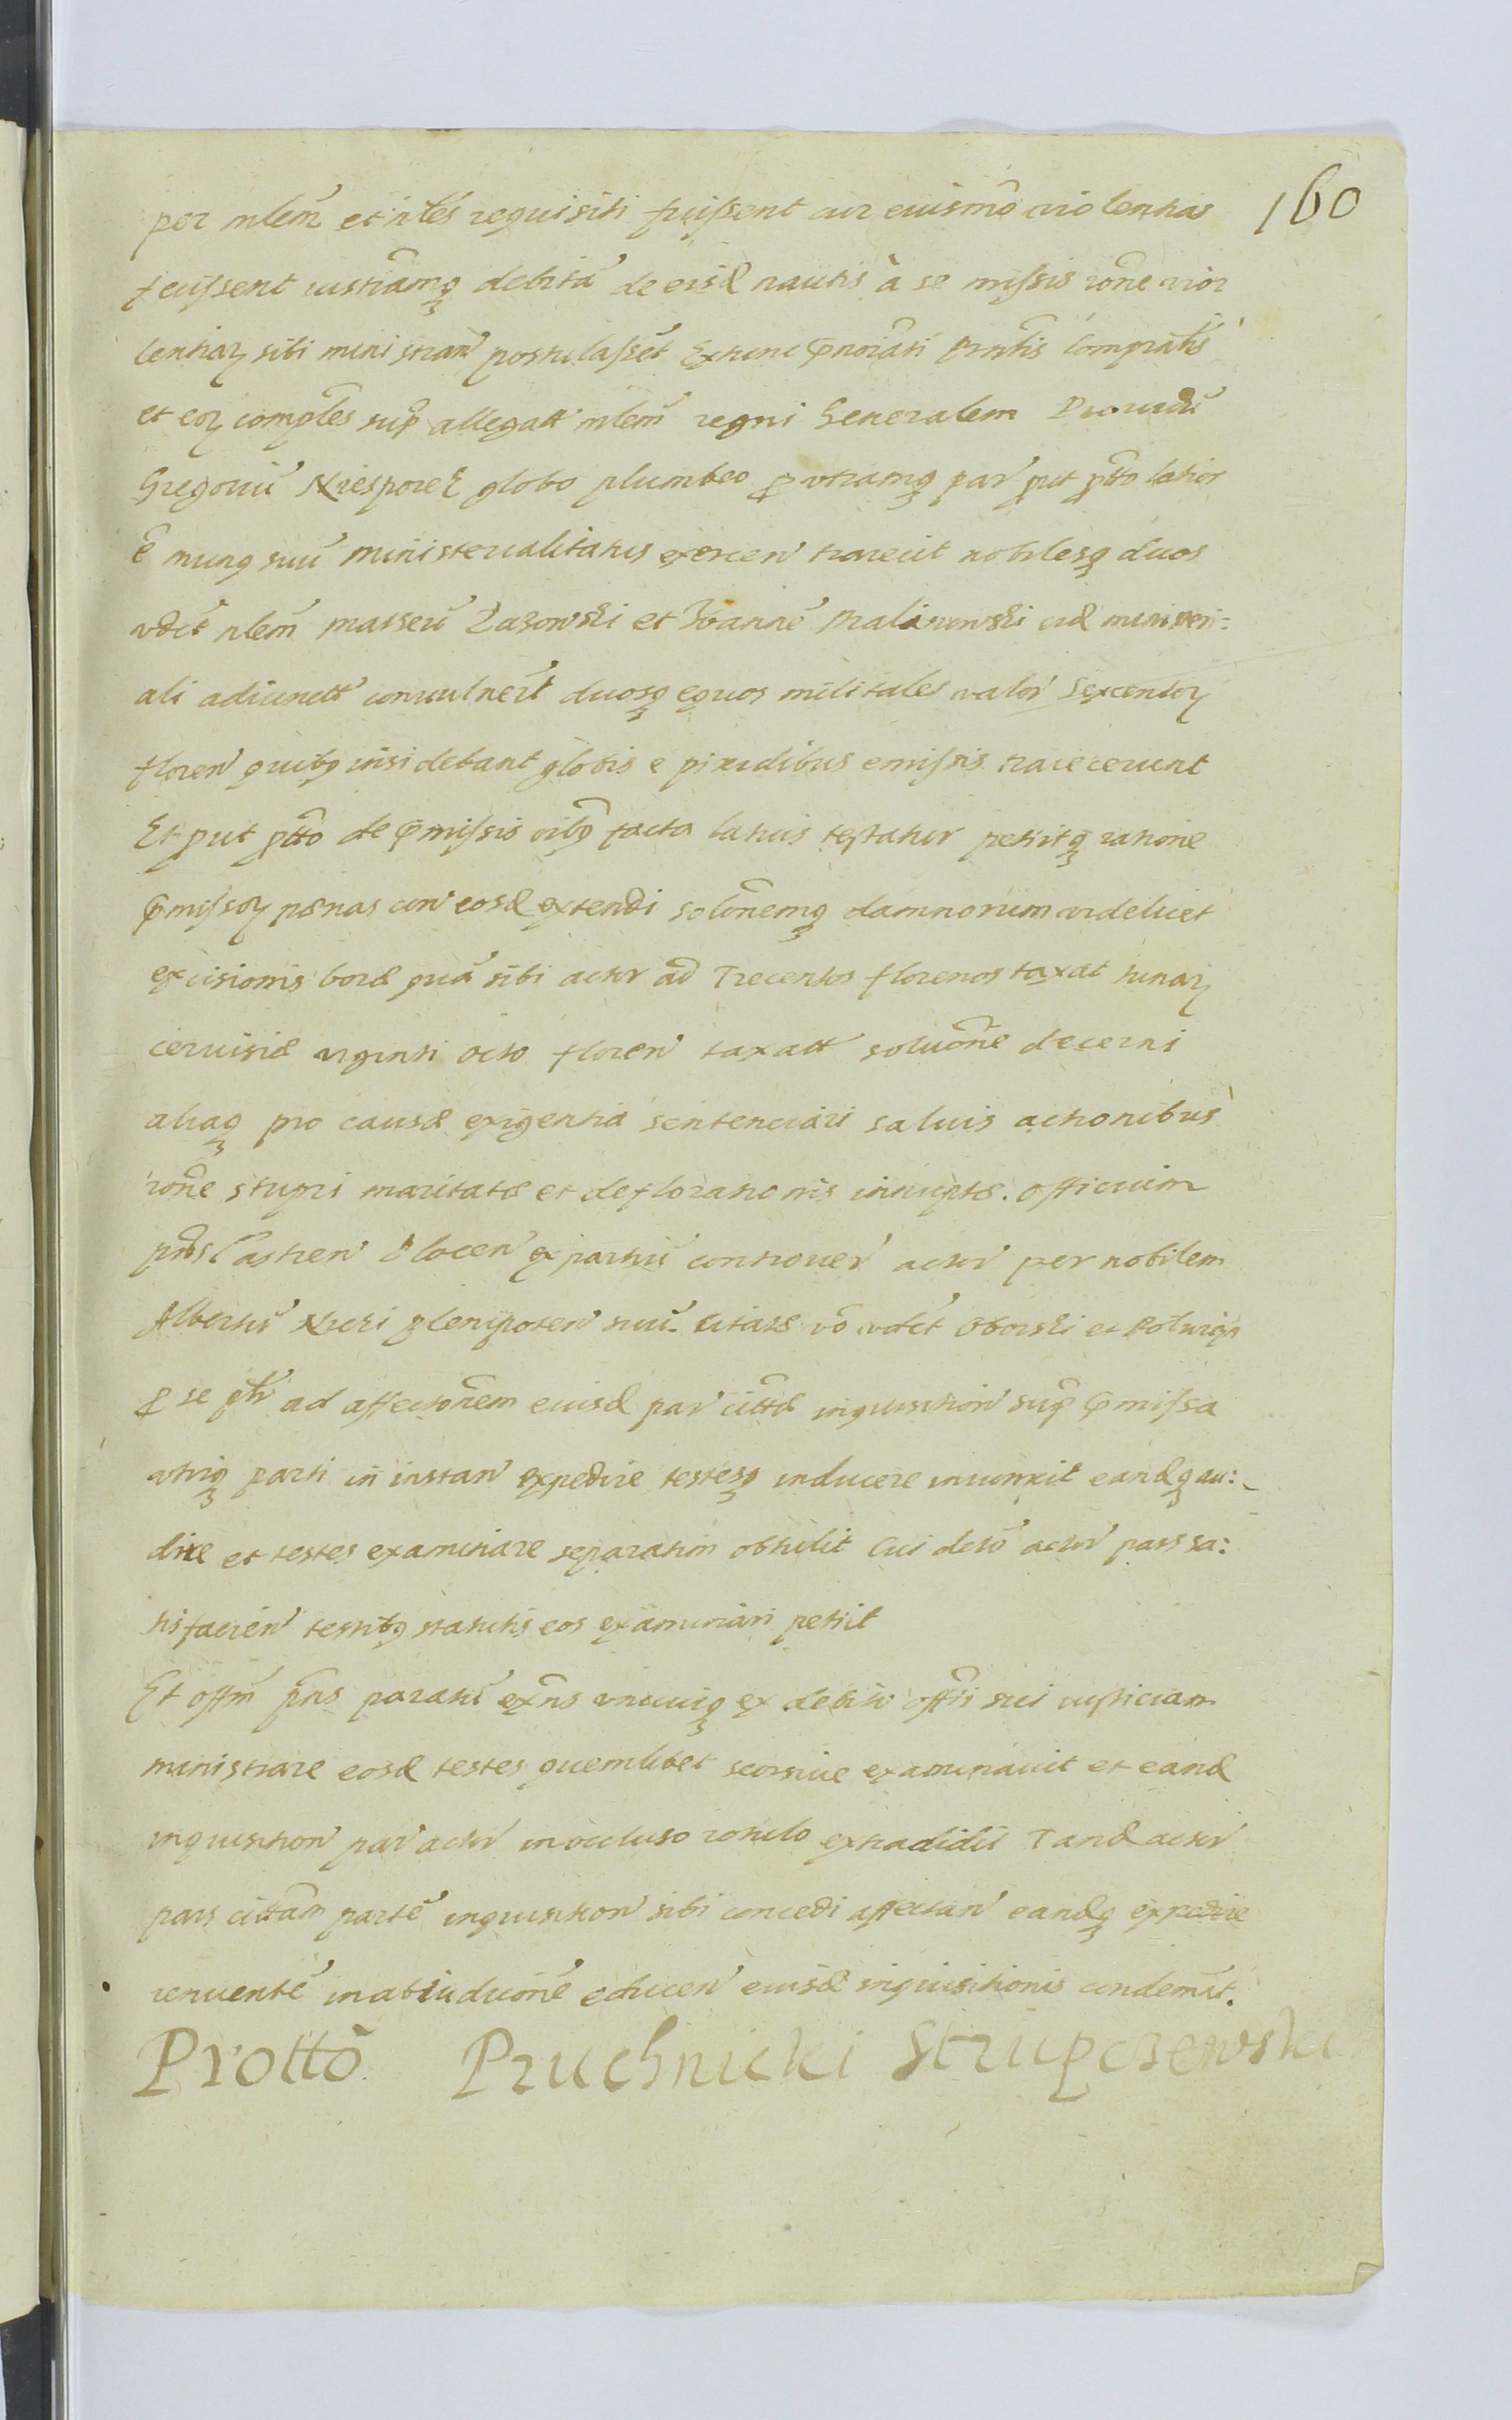 160
per nlem̃ et ñles requisiti fuissent cur eiusmõ violentias
fecissent iustiamq debitã de eisd nautis à se missis rone vio
lentiar sibi ministrari postulasset Extunc prnoĩati Prntis Comprntis
et eor comples sup allegatt nlem̃ regni Generalem Providũ
Gregoriũ Niesporek globo plumbeo p utramq par put ptto latior
ẽ munq suũ ministerialitatis exercen traiecit nobilesq duos
vdct nlem̃ Matheũ Zakowski et Ioannẽ Malinowski eid ministeri-
ali adiunctt convulnert duosq equos militales valor Sexcentor
floren quibq insidebant globis e pixidibus emissis traiecerunt
Et put ptto de pmissis oibq facta latius testatur petiitq ratione
pmissor pænas con eosd extendi solonemq damnorum videlicet
excisionis boræ quã sibi actor ad Trecentos florenos taxat tunar
cervisiæ viginti octo floren taxatt solucone decerni
aliaq pro causæ exigentia sentenciari salvis actionibus
rone stupri maritatæ et deflorationis innuptæ. Officium
prns Castren Plocen ex partiũ controver actor per nobilem
Albertũ plenipoten suũ. citatæ vo vdct Oborski et
p se ad affectonem eiusd par cittæ inquisition sup pmissa
utriq parti in instan expedire testesq inducere iniunxit eandq au:
dire et testes examinare separatim obtulit Cui decto actor pars sa:
tisfacien testibq statutis eos examinari petiit
Et offm prns paratũ exns unicuiq ex debito offii sui iusticiam
ministrare eosd testes quemlibet seorsive examinavit et eand
inquisition par actor in occluso rotulo extradidit Tand actor
pars cittam partẽ inquisition sibi concedi affectan eandq expedire
renuentẽ in abiudicone educen eiusd inquisitionis condemt.
Prottõ Pruchnicki Strupczewski